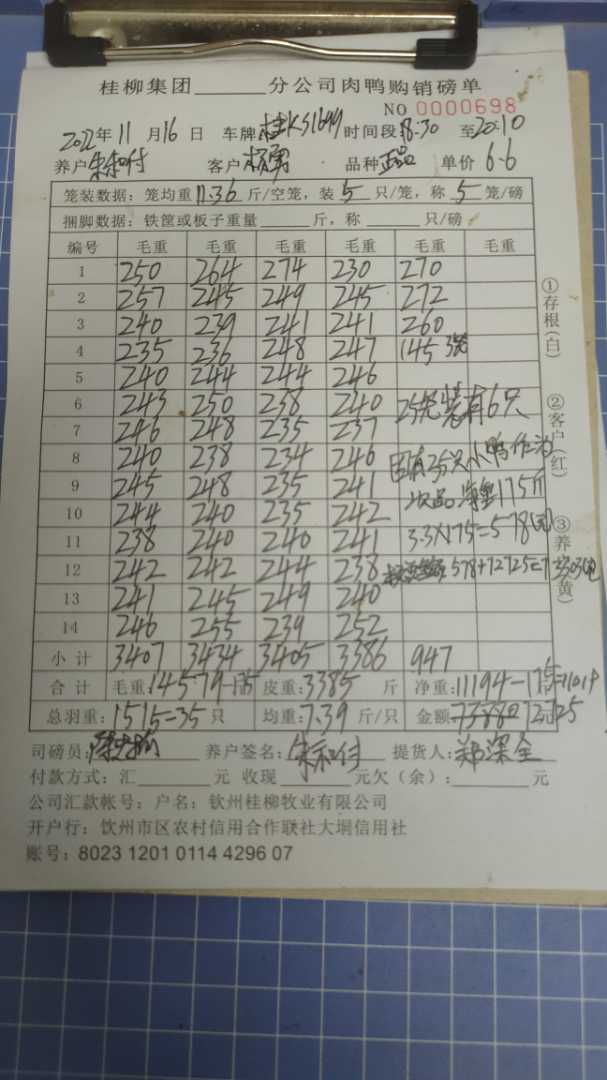 桂柳集团______分公司肉鸭购销磅单
NO 0000698
2022年11月16日 车牌桂KS1699 时间段18:30 至20:10
养户朱和付 客户杨勇 品种正品 单价6.6
笼装数据：笼均重11.36斤/空笼，装5只/笼，称5笼/磅
捆脚数据：铁筐或板子重量______斤，称______只/磅
编号 毛重 毛重 毛重 毛重 毛重 毛重
1 250 264 274 230 270
2 257 245 249 245 272
3 240 239 241 241 260
4 235 236 248 247 145 3笼
5 240 244 244 246
6 243 250 238 240 25笼装有6只
7 246 248 235 237
8 240 238 234 246 因有35只小鸭作为
9 245 248 235 241 次品 净重175斤
10 244 240 235 242
11 238 240 240 241 3.3×175=578(元)
12 242 242 244 238 578+72725=73303元
13 241 245 249 240
14 246 255 239 252
小计 3407 3434 3405 3386 947
合计 毛重：14579-175 皮重：3385 斤 净重：11194-175=11019
总羽重：1515-35 只 均重：7.39 斤/只 金额 73880 72725
司磅员： 养户签名：朱和付 提货人：郑深全
付款方式：汇______元 收现______元欠（余）：______元
公司汇款帐号：户名：钦州桂柳牧业有限公司
开户行：钦州市区农村信用合作联社大垌信用社
账号：8023 1201 0114 4296 07
①存根(白)
②客户(红)
③养(黄)